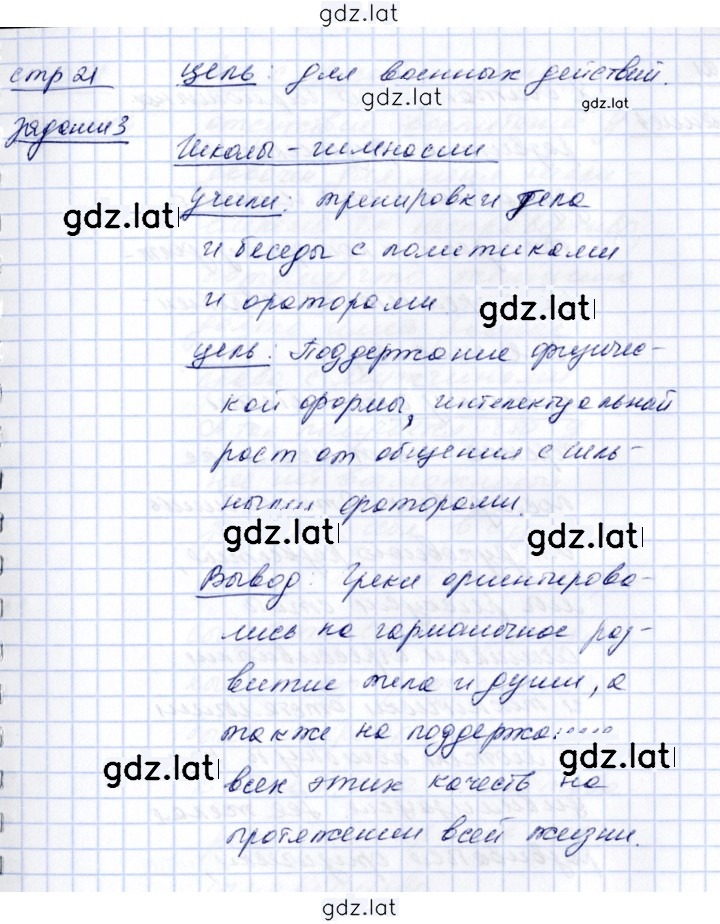 gdz.lat
стр 21 цель: для военных действий.
gdz.lat gdz.lat
Школы - гимнасии
gdz.lat учили: тренировки тела
и беседы с политиками
и ораторами gdz.lat
цель: Поддержание физичес-
кой формы, интелектуальный
рост от общения с силь-
ными ораторами.
gdz.lat gdz.lat
Вывод: Греки ориентирова-
лись на гармоничное раз-
витие тела и души, а
также на поддержа
gdz.lat gdz.lat
всех этих качеств на
протяжении всей жизни.
gdz.lat